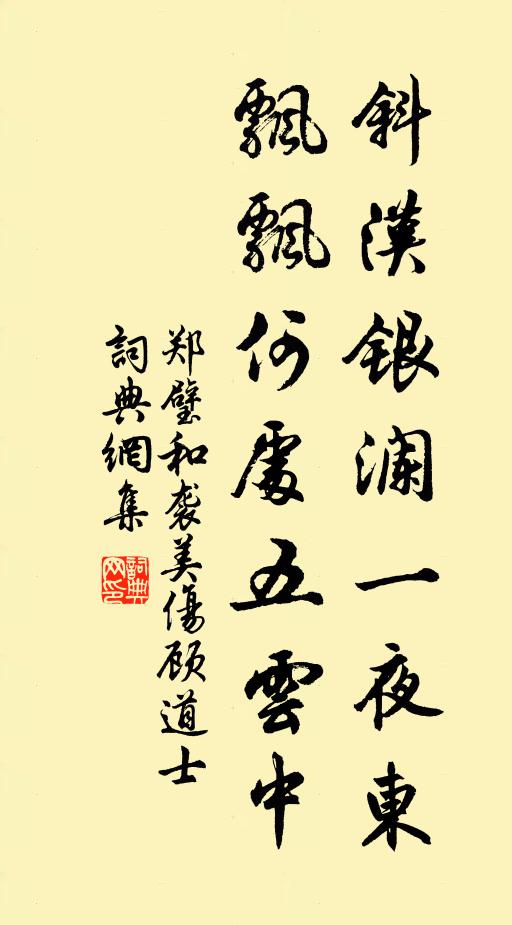 斜漢銀瀾一夜東
飄飄何處五雲中
郑璧和袭美傷顾道士
詞典網集
詞典网印